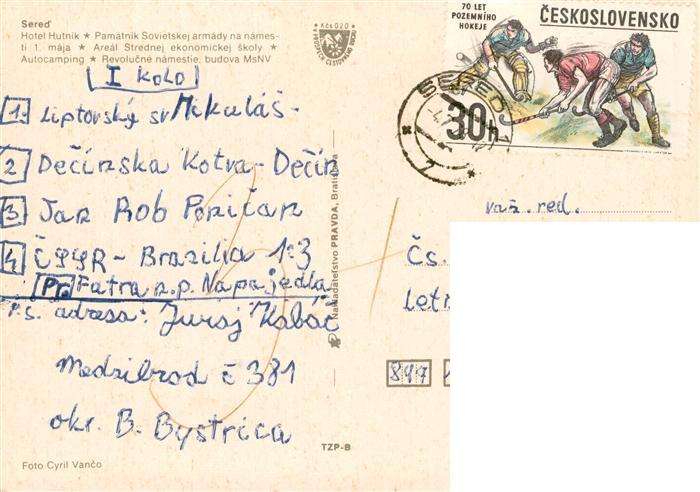 Sereď
Hotel Hutník ★ Pamätník Sovietskej armády na námes-
ti 1. mája ★ Areál Strednej ekonomickej školy ★
Autocamping ★ Revolučné námestie, budova MsNV
Kčs 0,20
70 LET
POZEMNÍHO
HOKEJE
ČESKOSLOVENSKO
30h
SEREĎ 1
I kolo
1. Liptovský sv Mikuláš-
2 Dečínska Kotva - Dečín
3 Jan Rob Poričan
4 ČSSR - Brazilia 1:3
Pr. Fatra n.p. Napajedla
P.S. adresa: Juraj Kabáč
Medzibrod č 381
okr. B. Bystrica
Nakladateľstvo PRAVDA, Bratislava
váž. red.
Čs.
Letn
TZP-B
Foto Cyril Vančo